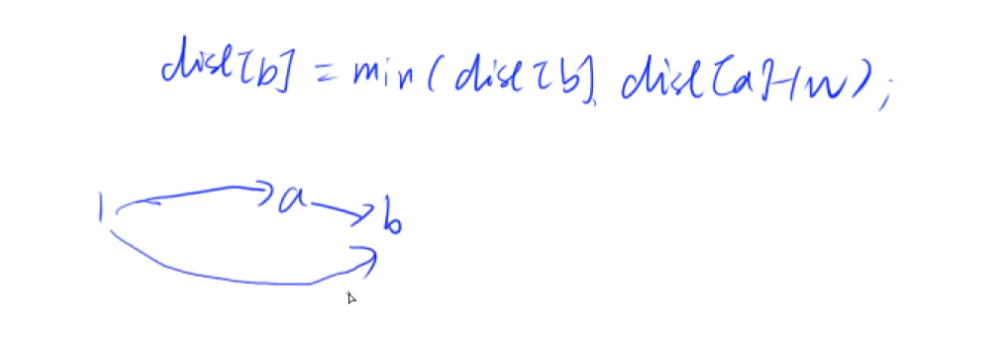 dist[b] = min(dist[b], dist[a]+w);
1 a b